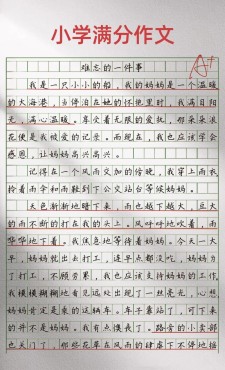 小学满分作文
A+
难忘的一件事
我是一只小小的船，我的妈妈是一个温暖
的大海港，当停泊在她的怀抱里时，我满目阳
光，满心温暖。享受着无限的爱抚，那朵朵浪
花便是我被爱的记录。而现在，我也应该学会
感恩，让妈妈高兴高兴。
记得在一个风雨交加的傍晚，我穿上雨衣
拎着雨伞和雨靴到了公交站台等候妈妈。
天色渐渐地暗下来，雨也越下越大，豆大
的雨不断的打在我的头上。风呼呼地吹着，雨
哗哗地下着。我焦急地等待着妈妈。今天一大
早，妈妈就出去打工，连早点都没吃，妈妈为
了打工，不顾劳累，我也应该支持妈妈的工作，
我模模糊糊地看见远处出现了一丝亮光，心想，
妈妈肯定是乘的这辆车。车子靠站了，可下来
的并不是妈妈，我有点懊丧了。路旁的小卖部
也关了门，那些花草在风雨的肆虐下不停地摇